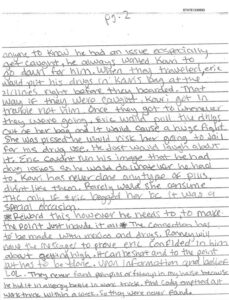 pg-2
anyone to know he had an issue especially
get caught, he always wanted Kari to
go down for him. When they traveled, eric
would put his drugs in Kari's bag at the
 right before they boarded. That
way if they were caught, Kari get in
trouble not him. Once they got to wherever
they were going, Eric would pull the drugs
out of her bag and it would cause a huge fight.
She was pissed he would risk her going to jail
for his drug use, he'd just would laugh about
it. Eric couldn't run his image that he had
drug issues. So he would do whatever he had
to. Kari has never done any type of pills,
didn't like them. Rarely would she consume
THC only if Eric begged her bc it was a
special occasion.
*Reword this however he needs to to make
the point. Just include it all* The connection has
to be made with mexico and drugs. Someway
have the messages to prove eric confided in him
about getting high. It can be short and to the point
but has to be done. Upon information and belief
LOL. They never found gummies or in my house because
he hid it in energy brave in work truck. And Cody emptied all
work trucks within a week. So they were never found.